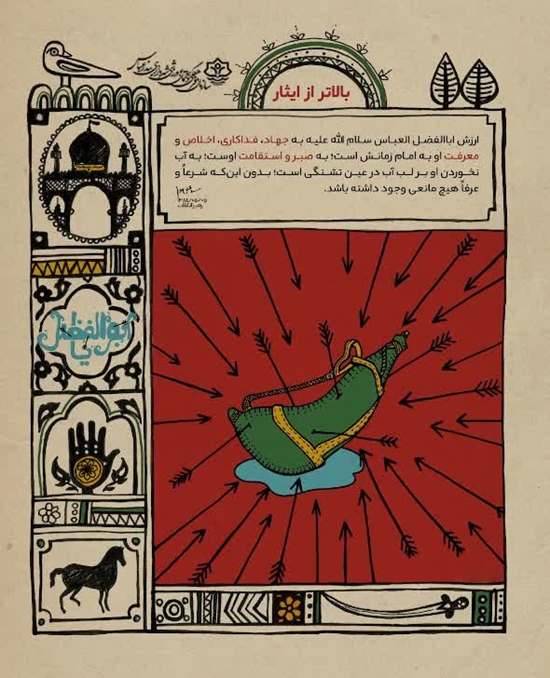 بالاتر از ایثار
ارزش اباالفضل العباس سلام الله علیه به جهاد، فداکاری، اخلاص و
معرفت او به امام زمانش است؛ به صبر و استقامت اوست؛ به آب
نخوردن او بر لب آب در عین تشنگی است؛ بدون این‌که شرعاً و
عرفاً هیچ مانعی وجود داشته باشد.
یا ابوالفضل